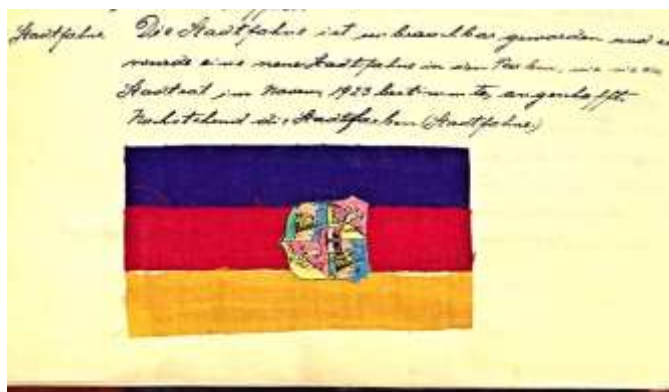 Stadtfahne. Die Stadtfahne ist unbrauchbar geworden und es
wurde eine neue Stadtfahne in den Farben, wie sie
Stadtrat im Novem. 1923 bestimmte, angeschafft.
Nachstehend die Stadtfarben (Stadtfahne)